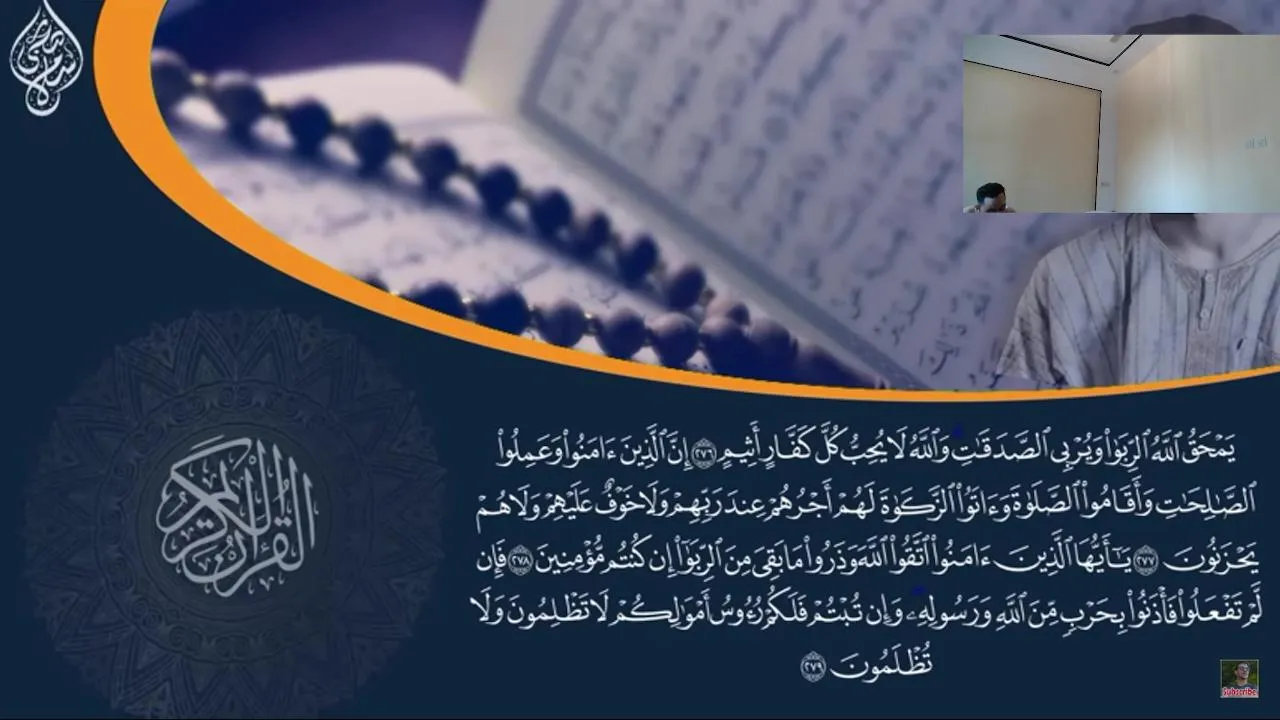 يَمْحَقُ ٱللَّهُ ٱلرِّبَوٰا۟ وَيُرْبِى ٱلصَّدَقَٰتِ ۗ وَٱللَّهُ لَا يُحِبُّ كُلَّ كَفَّارٍ أَثِيمٍ ٢٧٦ إِنَّ ٱلَّذِينَ ءَامَنُوا۟ وَعَمِلُوا۟
ٱلصَّٰلِحَٰتِ وَأَقَامُوا۟ ٱلصَّلَوٰةَ وَءَاتَوُا۟ ٱلزَّكَوٰةَ لَهُمْ أَجْرُهُمْ عِندَ رَبِّهِمْ وَلَا خَوْفٌ عَلَيْهِمْ وَلَا هُمْ
يَحْزَنُونَ ٢٧٧ يَٰٓأَيُّهَا ٱلَّذِينَ ءَامَنُوا۟ ٱتَّقُوا۟ ٱللَّهَ وَذَرُوا۟ مَا بَقِىَ مِنَ ٱلرِّبَوٰٓا۟ إِن كُنتُم مُّؤْمِنِينَ ٢٧٨ فَإِن
لَّمْ تَفْعَلُوا۟ فَأْذَنُوا۟ بِحَرْبٍ مِّنَ ٱللَّهِ وَرَسُولِهِۦ ۖ وَإِن تُبْتُمْ فَلَكُمْ رُءُوسُ أَمْوَٰلِكُمْ لَا تَظْلِمُونَ وَلَا
تُظْلَمُونَ ٢٧٩
القرآن الكريم
Subscribe